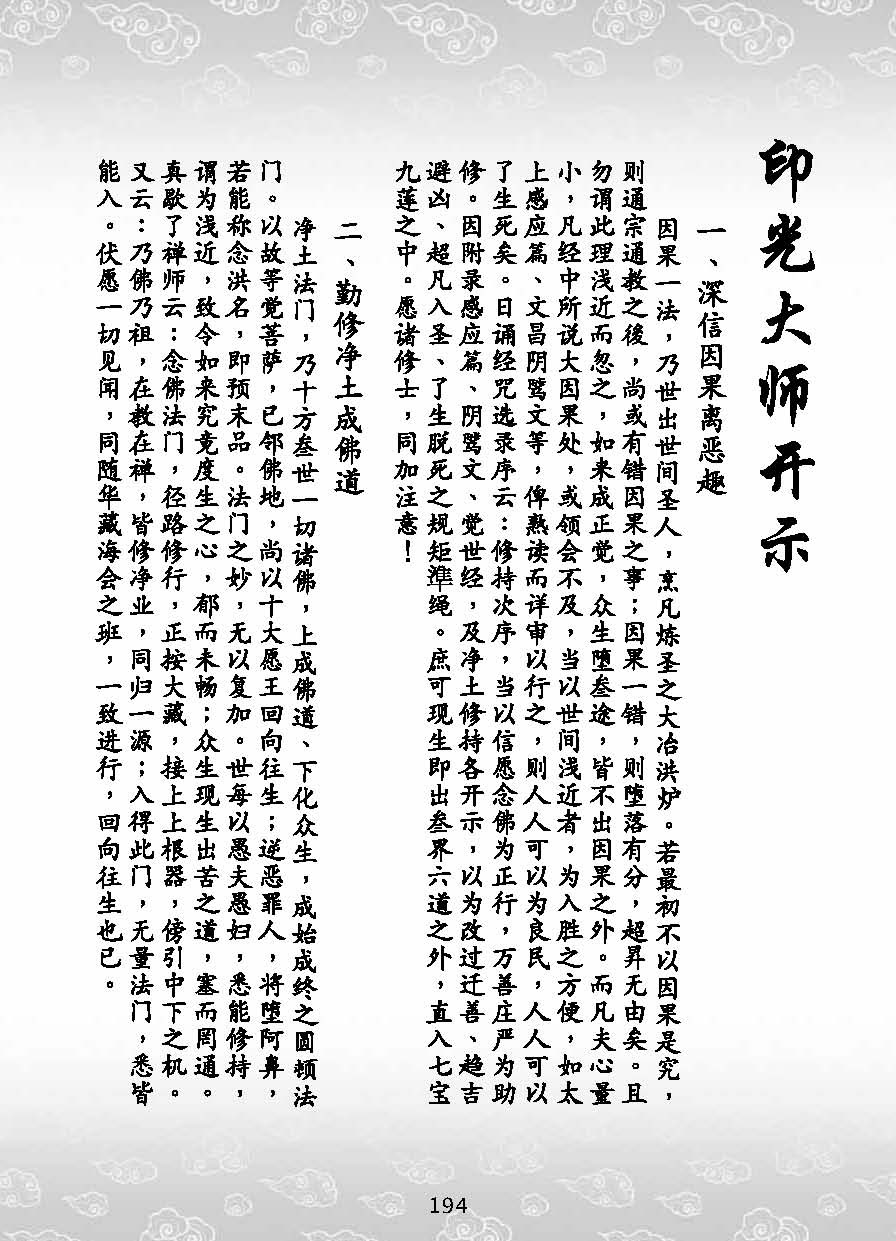 印光大师开示
一、深信因果离恶趣
因果一法，乃世出世间圣人，烹凡炼圣之大冶洪炉。若最初不以因果是究，
则通宗通教之後，尚或有错因果之事；因果一错，则堕落有分，超昇无由矣。且
勿谓此理浅近而忽之，如来成正觉，众生堕叁途，皆不出因果之外。而凡夫心量
小，凡经中所说大因果处，或领会不及，当以世间浅近者，为入胜之方便，如太
上感应篇、文昌阴骘文等，俾熟读而详审以行之，则人人可以为良民，人人可以
了生死矣。日诵经咒选录序云：修持次序，当以信愿念佛为正行，万善庄严为助
修。因附录感应篇、阴骘文、觉世经，及净土修持各开示，以为改过迁善、趋吉
避凶、超凡入圣、了生脱死之规矩準绳。庶可现生即出叁界六道之外，直入七宝
九莲之中。愿诸修士，同加注意！
二、勤修净土成佛道
净土法门，乃十方叁世一切诸佛，上成佛道、下化众生，成始成终之圆顿法
门。以故等觉菩萨，已邻佛地，尚以十大愿王回向往生；逆恶罪人，将堕阿鼻，
若能称念洪名，即预末品。法门之妙，无以复加。世每以愚夫愚妇，悉能修持，
谓为浅近，致令如来究竟度生之心，郁而未畅；众生现生出苦之道，塞而罔通。
真歇了禅师云：念佛法门，径路修行，正按大藏，接上上根器，傍引中下之机。
又云：乃佛乃祖，在教在禅，皆修净业，同归一源；入得此门，无量法门，悉皆
能入。伏愿一切见闻，同随华藏海会之班，一致进行，回向往生也已。
194